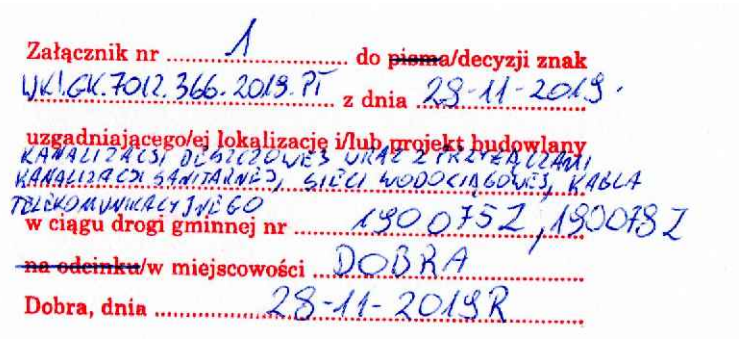 Załącznik nr 1 do pisma/decyzji znak
WKI.GK.7012.366.2019.PT z dnia 28-11-2019.
uzgadniającego/ej lokalizację i/lub projekt budowlany
KANALIZACJI DESZCZOWEJ WRAZ Z PRZYŁĄCZAMI
KANALIZACJI SANITARNEJ, SIECI WODOCIĄGOWEJ, KABLA
TELEKOMUNIKACYJNEGO
w ciągu drogi gminnej nr 190075Z, 190078Z
na odcinku/w miejscowości DOBRA
Dobra, dnia 28-11-2019R